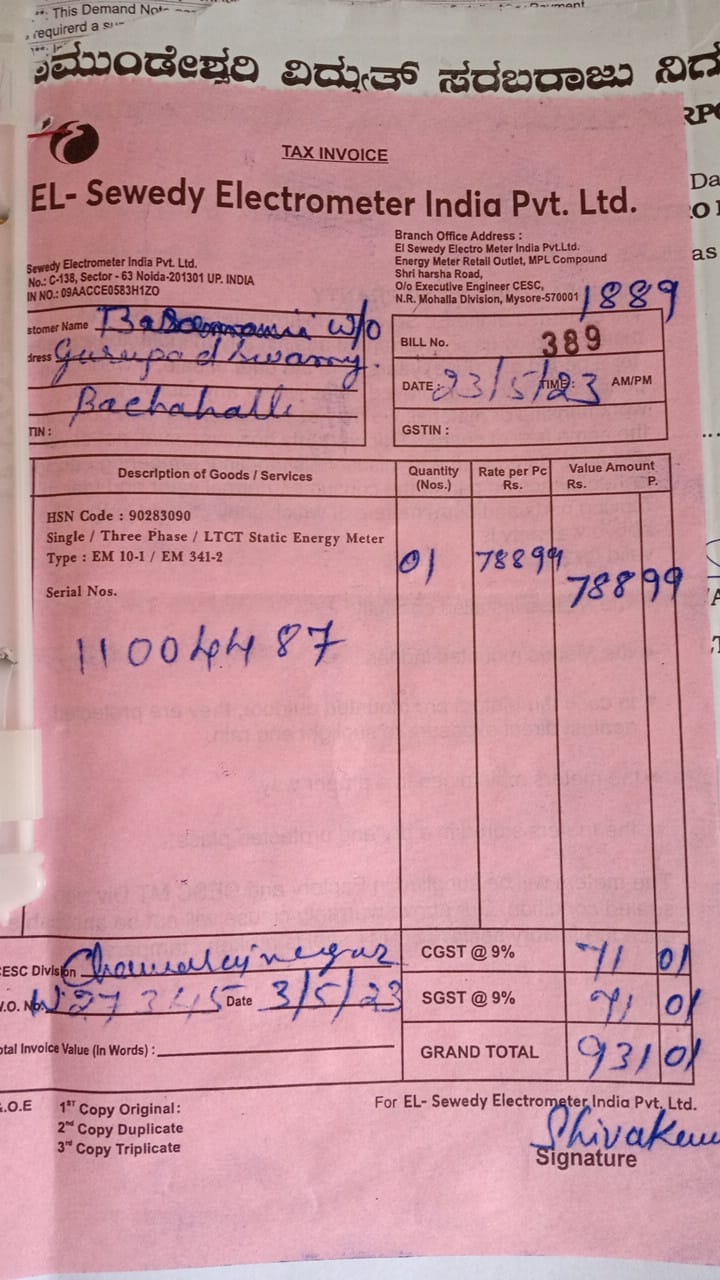 **. This Demand
requirerd a
ಮುಂಡೇಶ್ವರಿ ವಿದ್ಯುತ್ ಸರಬರಾಜು ನಿಗ
RPO
TAX INVOICE
EL- Sewedy Electrometer India Pvt. Ltd.
Da
as
Sewedy Electrometer India Pvt. Ltd.
No.: C-138, Sector - 63 Noida-201301 UP. INDIA
IN NO.: 09AACCE0583H1ZO
Branch Office Address :
El Sewedy Electro Meter India Pvt.Ltd.
Energy Meter Retail Outlet, MPL Compound
Shri harsha Road,
O/o Executive Engineer CESC,
N.R. Mohalla Division, Mysore-570001
1889
stomer Name w/o
dress Gurupadswamy.
Bachahalli
TIN :
BILL No. 389
DATE : 23/5/23 TIME : AM/PM
GSTIN :
Description of Goods / Services Quantity (Nos.) Rate per Pc Rs. Value Amount Rs. P.
HSN Code : 90283090
Single / Three Phase / LTCT Static Energy Meter
Type : EM 10-1 / EM 341-2 01 78899 78899
Serial Nos.
11004487
CESC Division Chamarajnagar CGST @ 9% 71 01
V.O. No. 27345 Date 3/5/23 SGST @ 9% 71 01
otal Invoice Value (In Words) : GRAND TOTAL 931 01
.O.E 1ST Copy Original:
2nd Copy Duplicate
3rd Copy Triplicate
For EL- Sewedy Electrometer India Pvt. Ltd.
Shivakum
Signature